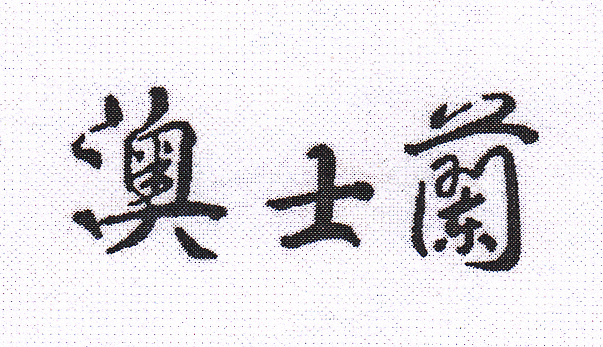 澳士蘭